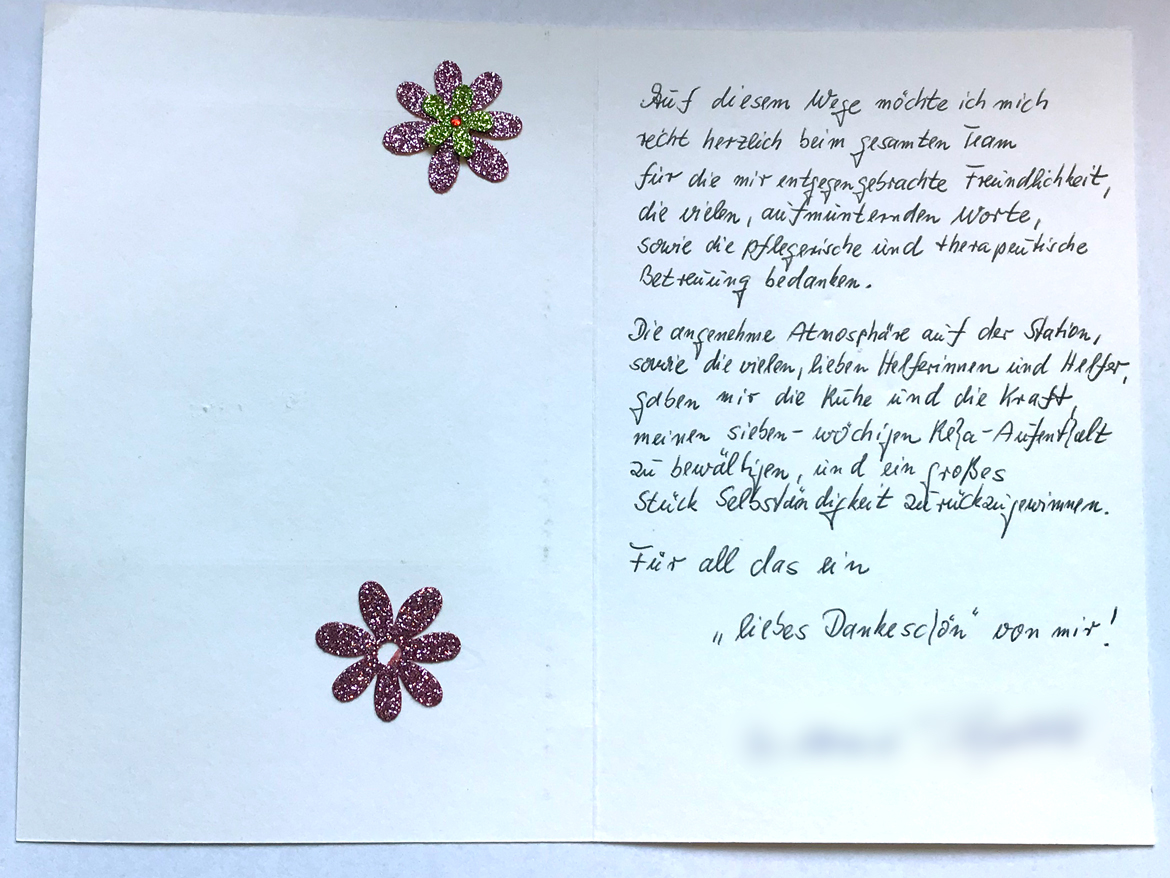 Auf diesem Wege möchte ich mich
recht herzlich beim gesamten Team
für die mir entgegengebrachte Freundlichkeit,
die vielen, aufmunternden Worte,
sowie die pflegerische und therapeutische
Betreuung bedanken.
Die angenehme Atmosphäre auf der Station,
sowie die vielen, lieben Helferinnen und Helfer,
gaben mir die Ruhe und die Kraft,
meinen sieben-wöchigen Reha-Aufenthalt
zu bewältigen, und ein großes
Stück Selbständigkeit zurückzugewinnen.
Für all das ein
„liebes Dankeschön" von mir!